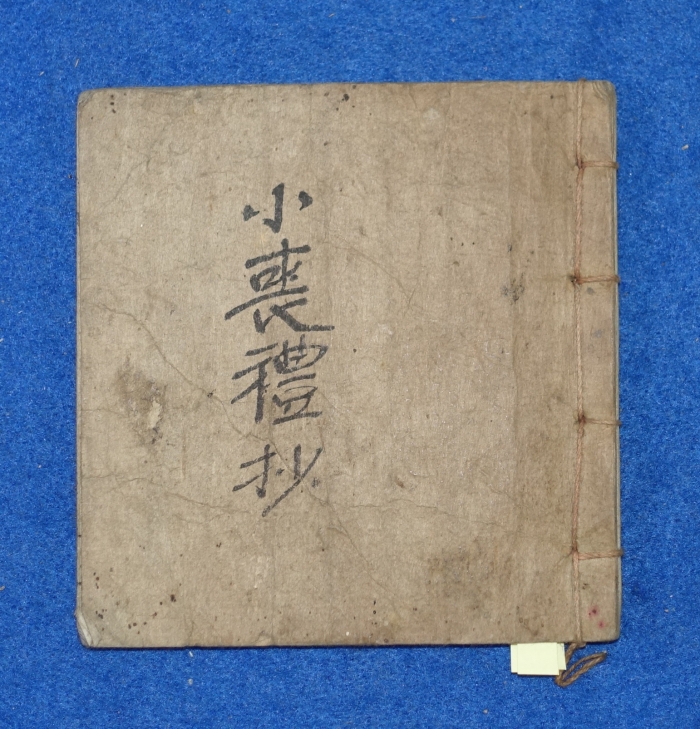 小喪禮抄